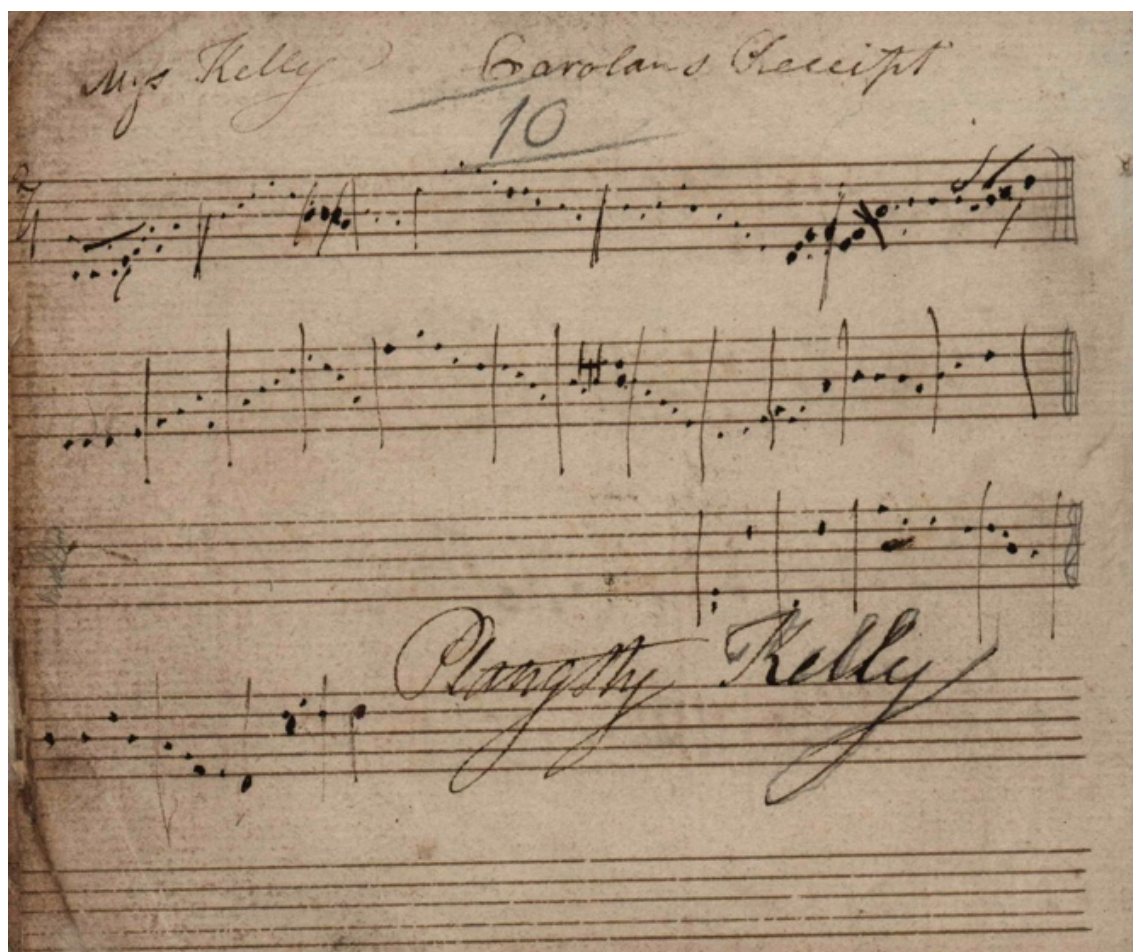 Miss Kelly Carolans Receipt
10
Plangsty Kelly